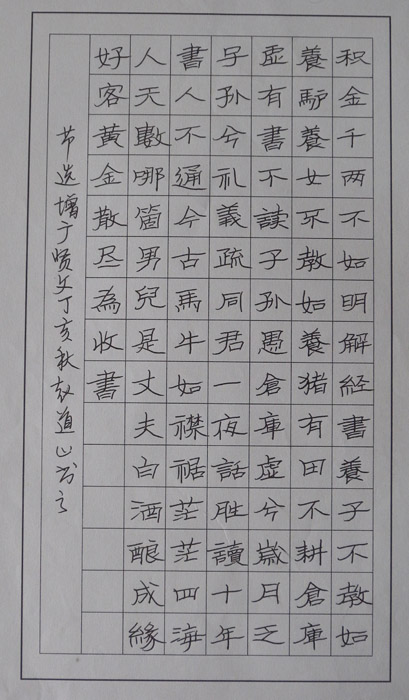 积金千两不如明解経書養子不教如
養驴養女不教如養猪有田不耕倉庫
虚有書不读子孙愚倉庫虚兮歲月乏
子孙兮礼義疏同君一夜話胜讀十年
書人不通今古馬牛如襟裾茫茫四海
人天數哪箇男兒是丈夫白酒酿成緣
好客黄金散尽為收書
节选增广贤文丁亥秋赵道山书之